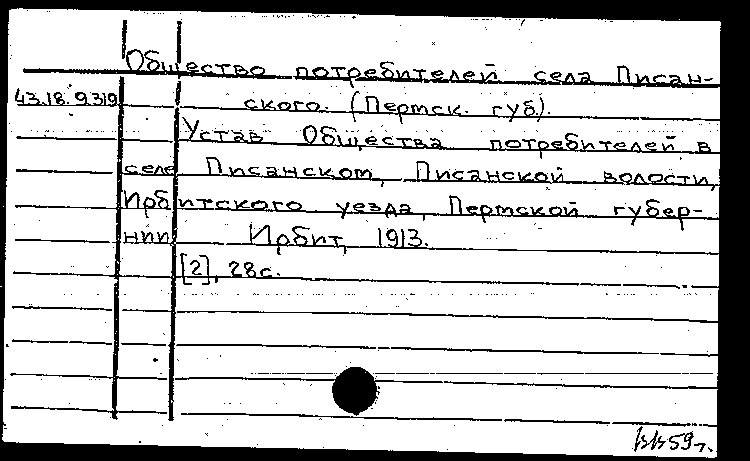 Общество потребителей села Писан-
43.18.9319 ского. (Пермск. губ).
Устав Общества потребителей в
селе Писанском, Писанской волости,
Ирбитского уезда, Пермской губер-
нии. Ирбит, 1913.
[2], 28с.